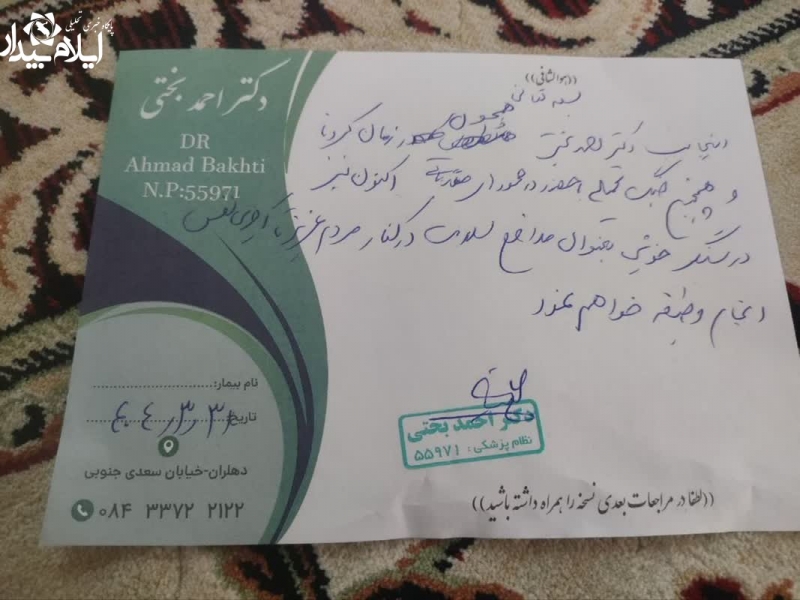 پایگاه خبری تحلیلی
ایلام بیدار
دکتر احمد بختی
DR
Ahmad Bakhti
N.P:55971
((هوالشافی))
بسمه تعالی
اینجانب دکتر احمد بختی همچون در زمان کرونا
و همچنین جنگ تحمیلی با حضور در اکنون نیز
در سنگر خویش بعنوان مدافع سلامت در کنار مردم عزیز تا آخرین نفس
انجام وظیفه خواهم نمود
دکتر احمد بختی
نظام پزشکی: ۵۵۹۷۱
نام بیمار:
تاریخ: ۴۰۴/۳/۳۱
دهلران-خیابان سعدی جنوبی
۰۸۴ ۳۳۷۲ ۲۱۲۲
((لطفا در مراجعات بعدی نسخه را همراه داشته باشید))